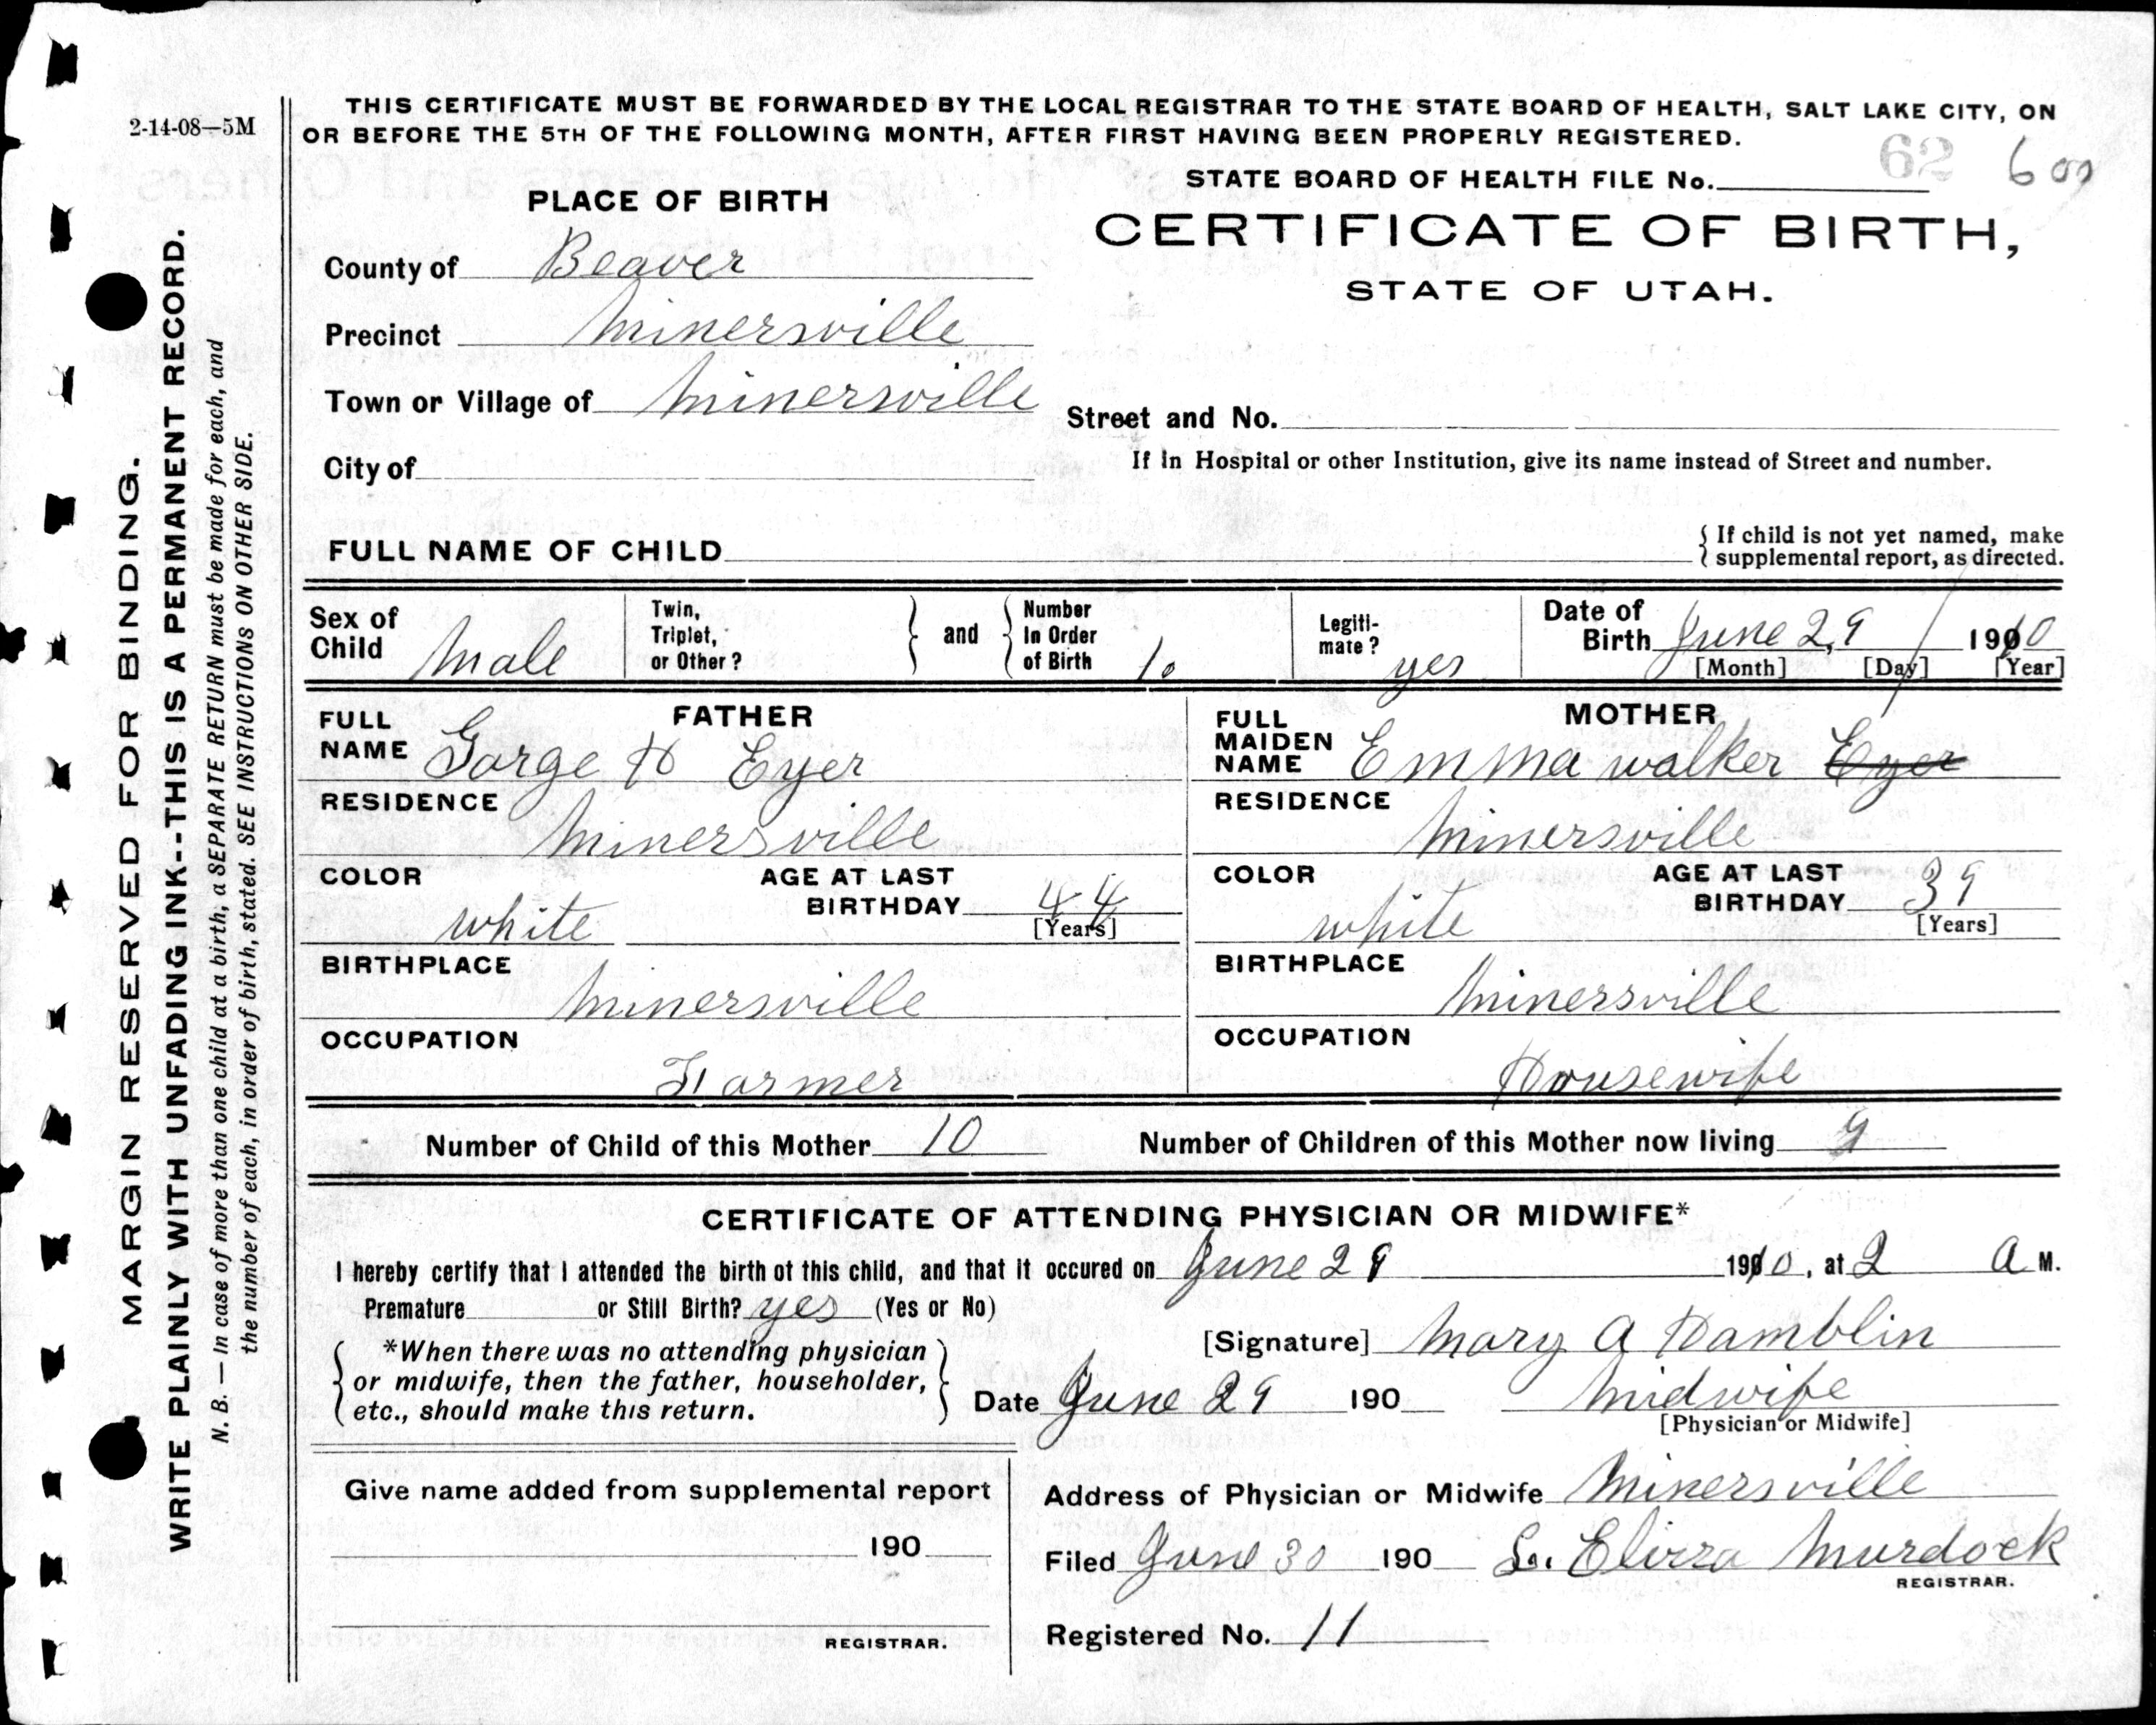 2-14-08—5M
THIS CERTIFICATE MUST BE FORWARDED BY THE LOCAL REGISTRAR TO THE STATE BOARD OF HEALTH, SALT LAKE CITY, ON
OR BEFORE THE 5TH OF THE FOLLOWING MONTH, AFTER FIRST HAVING BEEN PROPERLY REGISTERED.
STATE BOARD OF HEALTH FILE No. 62 600
CERTIFICATE OF BIRTH,
STATE OF UTAH.
PLACE OF BIRTH
County of Beaver
Precinct Minersville
Town or Village of Minersville
Street and No.
City of
If In Hospital or other Institution, give its name instead of Street and number.
FULL NAME OF CHILD
{ If child is not yet named, make
supplemental report, as directed.
Sex of Child Male
Twin, Triplet, or Other?
and
Number In Order of Birth 1.
Legiti-mate? yes
Date of Birth June 29 1910
[Month] [Day] [Year]
FATHER
FULL NAME Gorge H Eyer
RESIDENCE
Minersville
COLOR white
AGE AT LAST BIRTHDAY 44
[Years]
BIRTHPLACE
Minersville
OCCUPATION
Farmer
MOTHER
FULL MAIDEN NAME Emma walker Eyer
RESIDENCE
Minersville
COLOR white
AGE AT LAST BIRTHDAY 39
[Years]
BIRTHPLACE
Minersville
OCCUPATION
Housewife
Number of Child of this Mother 10
Number of Children of this Mother now living 9
CERTIFICATE OF ATTENDING PHYSICIAN OR MIDWIFE*
I hereby certify that I attended the birth of this child, and that it occured on June 29 1910, at 2 a M.
Premature or Still Birth? yes (Yes or No)
*When there was no attending physician
or midwife, then the father, householder,
etc., should make this return.
[Signature] Mary A Hamblin
Date June 29 190 Midwife
[Physician or Midwife]
Give name added from supplemental report
190
REGISTRAR.
Address of Physician or Midwife Minersville
Filed June 30 190 S. Elvira Murdock
REGISTRAR.
Registered No. 11
MARGIN RESERVED FOR BINDING.
WRITE PLAINLY WITH UNFADING INK--THIS IS A PERMANENT RECORD.
N. B. — In case of more than one child at a birth, a SEPARATE RETURN must be made for each, and
the number of each, in order of birth, stated. SEE INSTRUCTIONS ON OTHER SIDE.